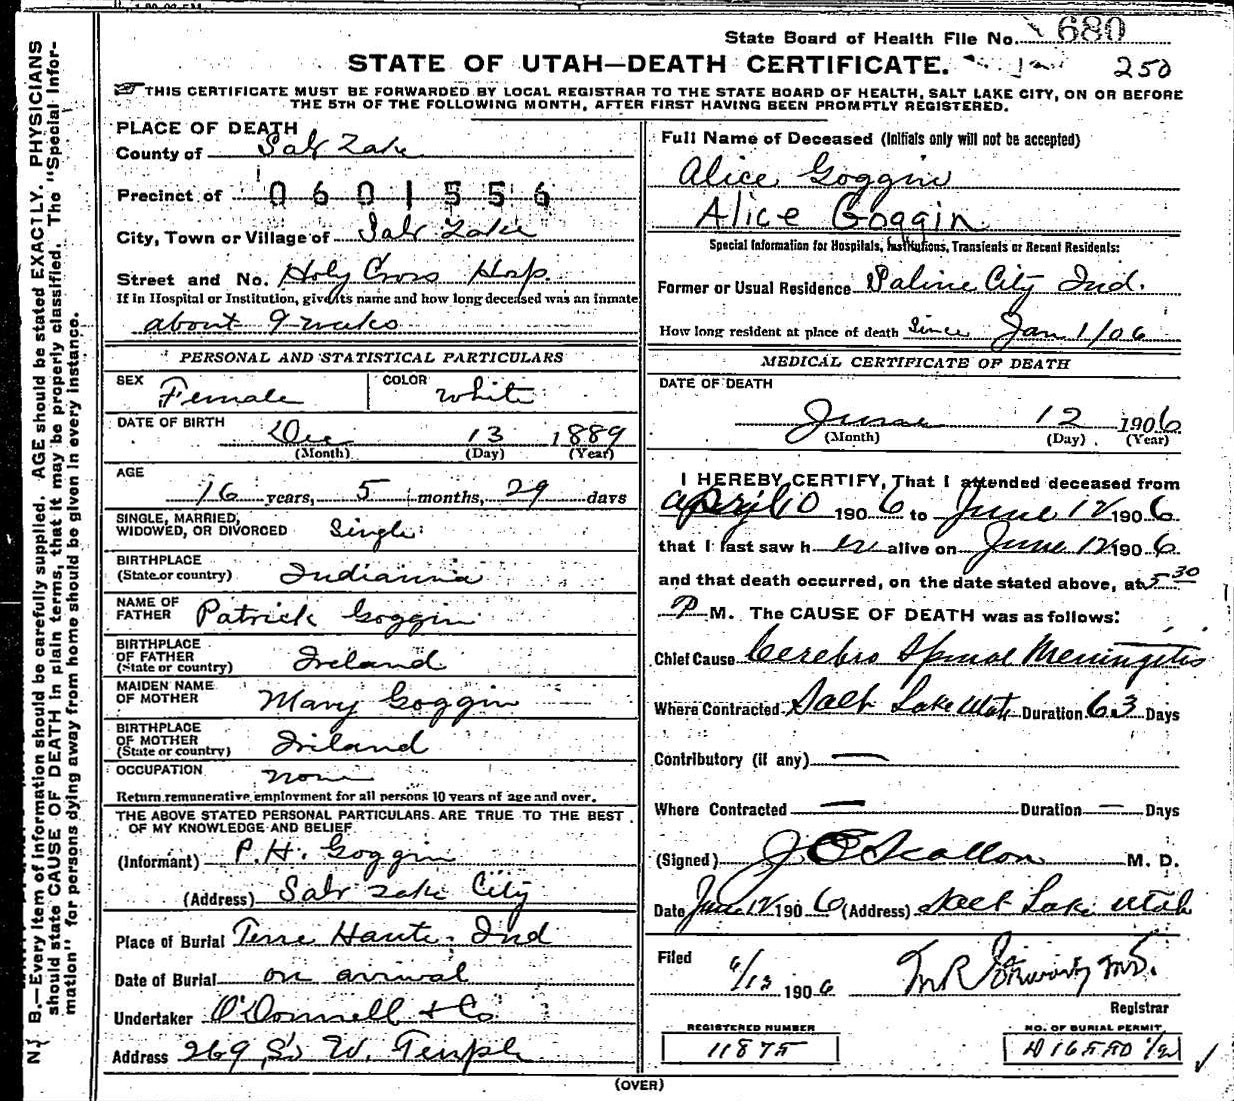 State Board of Health File No. 680
STATE OF UTAH—DEATH CERTIFICATE.
250
THIS CERTIFICATE MUST BE FORWARDED BY LOCAL REGISTRAR TO THE STATE BOARD OF HEALTH, SALT LAKE CITY, ON OR BEFORE
THE 5TH OF THE FOLLOWING MONTH, AFTER FIRST HAVING BEEN PROMPTLY REGISTERED.
N. B.—Every item of information should be carefully supplied. AGE should be stated EXACTLY. PHYSICIANS
should state CAUSE OF DEATH in plain terms, that it may be properly classified. The "Special Infor-
mation" for persons dying away from home should be given in every instance.
PLACE OF DEATH
County of Salt Lake
Precinct of 0601556
City, Town or Village of Salt Lake
Street and No. Holy Cross Hosp.
If in Hospital or Institution, give its name and how long deceased was an inmate
about 9 weeks
PERSONAL AND STATISTICAL PARTICULARS
SEX Female COLOR White
DATE OF BIRTH Dec 13 1889
(Month) (Day) (Year)
AGE
16 years, 5 months, 29 days
SINGLE, MARRIED,
WIDOWED, OR DIVORCED Single
BIRTHPLACE
(State or country) Indianna
NAME OF
FATHER Patrick Goggin
BIRTHPLACE
OF FATHER
(State or country) Ireland
MAIDEN NAME
OF MOTHER Mary Goggin
BIRTHPLACE
OF MOTHER
(State or country) Iriland
OCCUPATION None
Return remunerative employment for all persons 10 years of age and over.
THE ABOVE STATED PERSONAL PARTICULARS ARE TRUE TO THE BEST
OF MY KNOWLEDGE AND BELIEF
(Informant) P. H. Goggin
(Address) Salt Lake City
Place of Burial Terre Haute, Ind
Date of Burial on arrival
Undertaker O'Donnell & Co
Address 269 So W. Temple
Full Name of Deceased (Initials only will not be accepted)
Alice Goggin
Alice Goggin
Special Information for Hospitals, Institutions, Transients or Recent Residents:
Former or Usual Residence Saline City Ind.
How long resident at place of death Since Jan 1/06
MEDICAL CERTIFICATE OF DEATH
DATE OF DEATH
June 12 1906
(Month) (Day) (Year)
I HEREBY CERTIFY, That I attended deceased from
April 10 1906 to June 12 1906
that I last saw her alive on June 12 1906
and that death occurred, on the date stated above, at 5 30
P M. The CAUSE OF DEATH was as follows:
Chief Cause Cerebro Spinal Meningitis
Where Contracted Salt Lake Utah Duration 63 Days
Contributory (if any) —
Where Contracted — Duration — Days
(Signed) M. D.
Date June 12 1906 (Address) Salt Lake Utah
Filed
6/13 1906
Registrar
REGISTERED NUMBER
11875
NO. OF BURIAL PERMIT
(OVER)